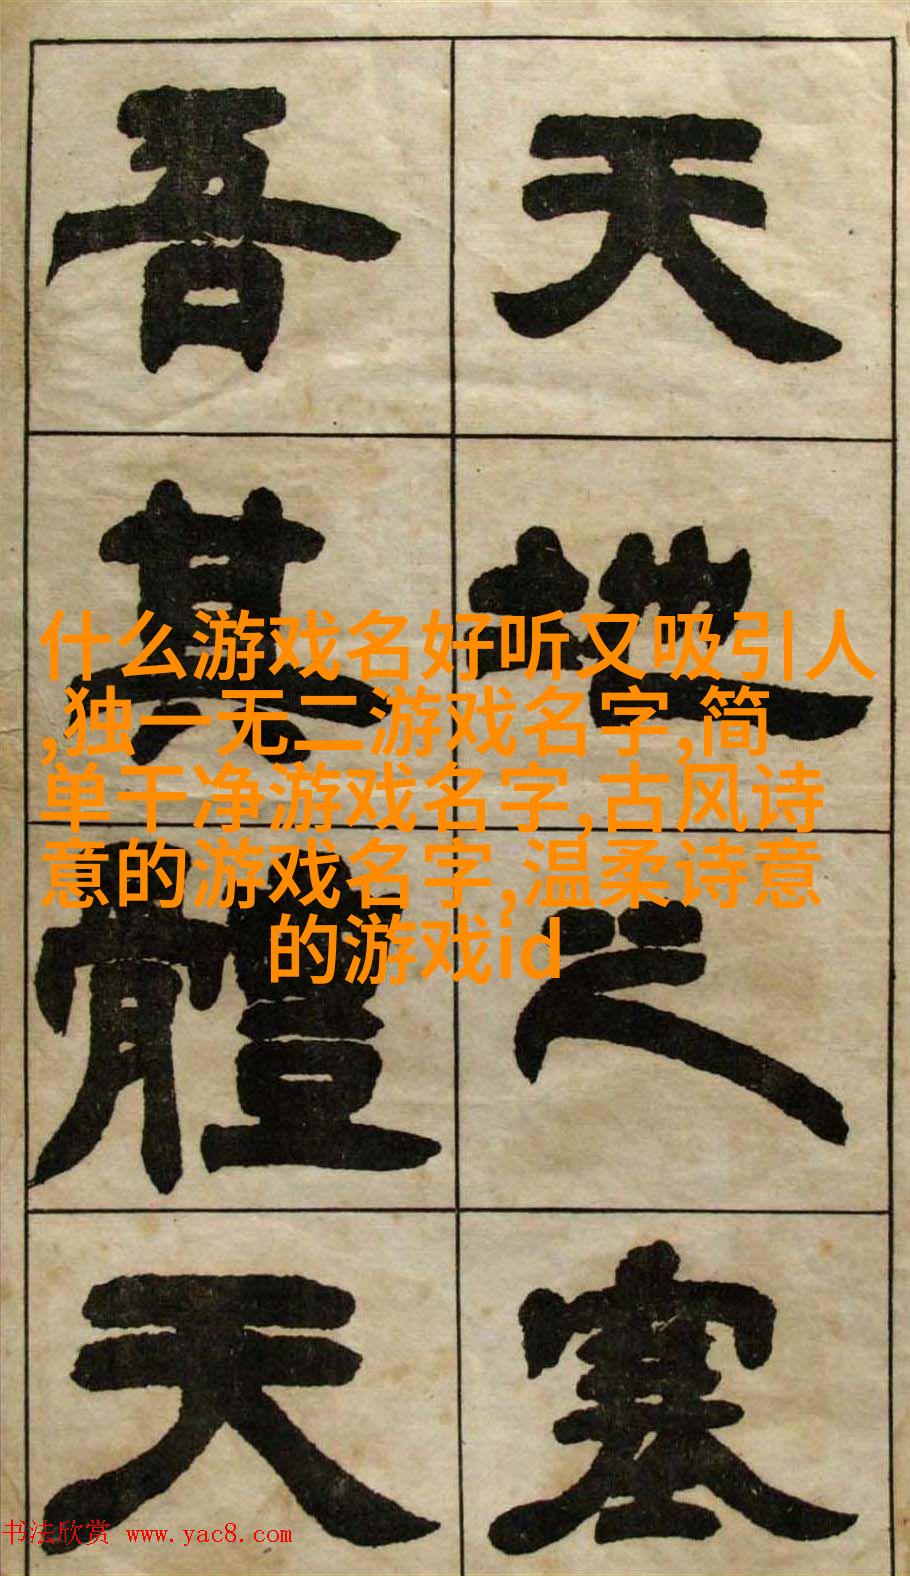 天地之塞
吾其體天
什么游戏名好听又吸引人
,独一无二游戏名字,简
单干净游戏名字,古风诗
意的游戏名字,温柔诗意
的游戏id
书法欣赏 www.yac8.com